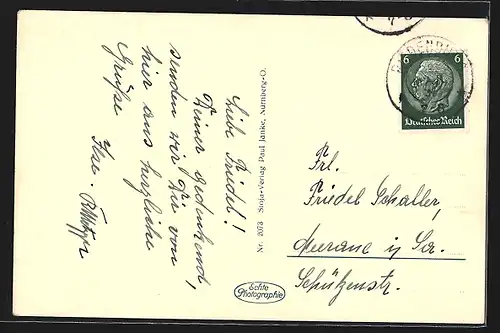 Liebe Friedel!
Deiner gedenkend,
senden wir Dir von
hier aus herzliche
Grüße
Ilse
Nr. 2073 Stoja-Verlag Paul Janke, Nürnberg-O.
Echte
Photographie
6 6
Deutsches Reich
Frl.
Friedel Schaller,
Meerane i/ Sa.
Schützenstr.